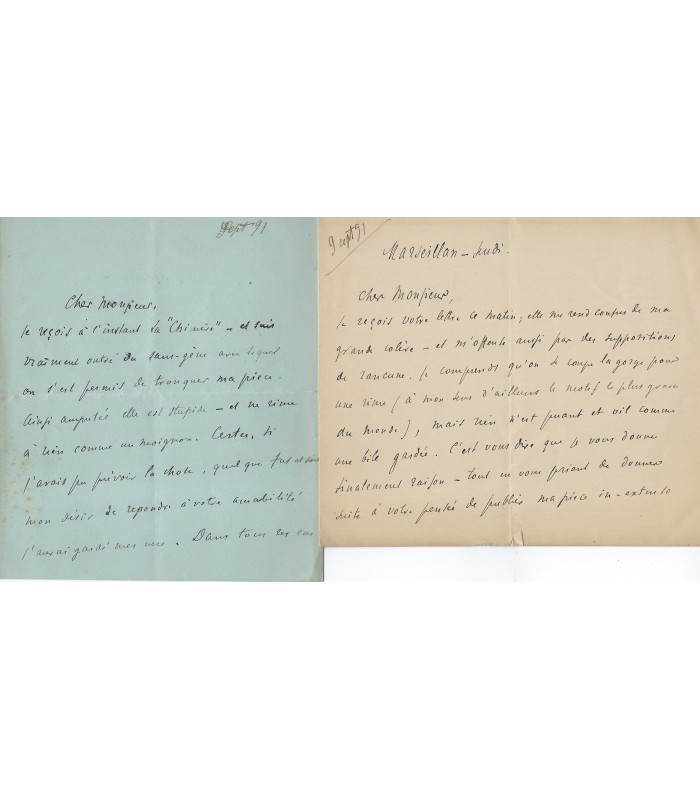 Sept 91
Cher Monsieur,
Je reçois à l'instant La "Chimère" – et suis
vraiment outré du sans-gêne avec lequel
on s'est permis de tronquer ma pièce.
Ainsi amputée elle est stupide – et ne rime
à rien comme un moignon. Certes, si
j'avais pu prévoir la chose, quel que fut
mon désir de repondre à votre amabilité
j'aurai gardé mes vers. Dans tous les cas
9 sept 91
Marseillan – Jeudi.
Cher Monsieur,
Je reçois votre lettre ce matin; elle me rend confus de ma
grande colère – et m'offense aussi par des suppositions
de rancune. Je comprends qu'on se coupe la gorge pour
une rime (à mon sens d'ailleurs le motif le plus grave
du monde), mais rien n'est puant et vil comme
une bile gardée. C'est vous dire que je vous donne
finalement raison – tout en vous priant de donner
suite à votre pensée de publier ma pièce in-extenso